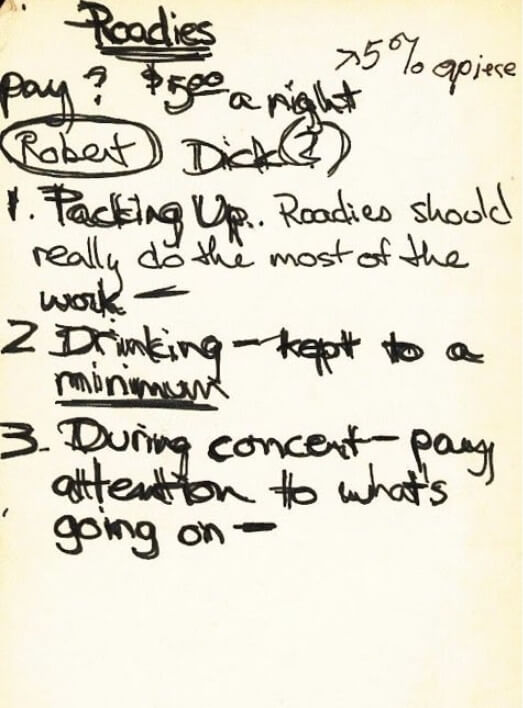 Roadies
>5% apiece
pay? $5.00 a night
Robert Dick(?)
1. Packing Up.. Roadies should
really do the most of the
work —
2 Drinking — kept to a
minimum
3. During concert — pay
attention to what's
going on —